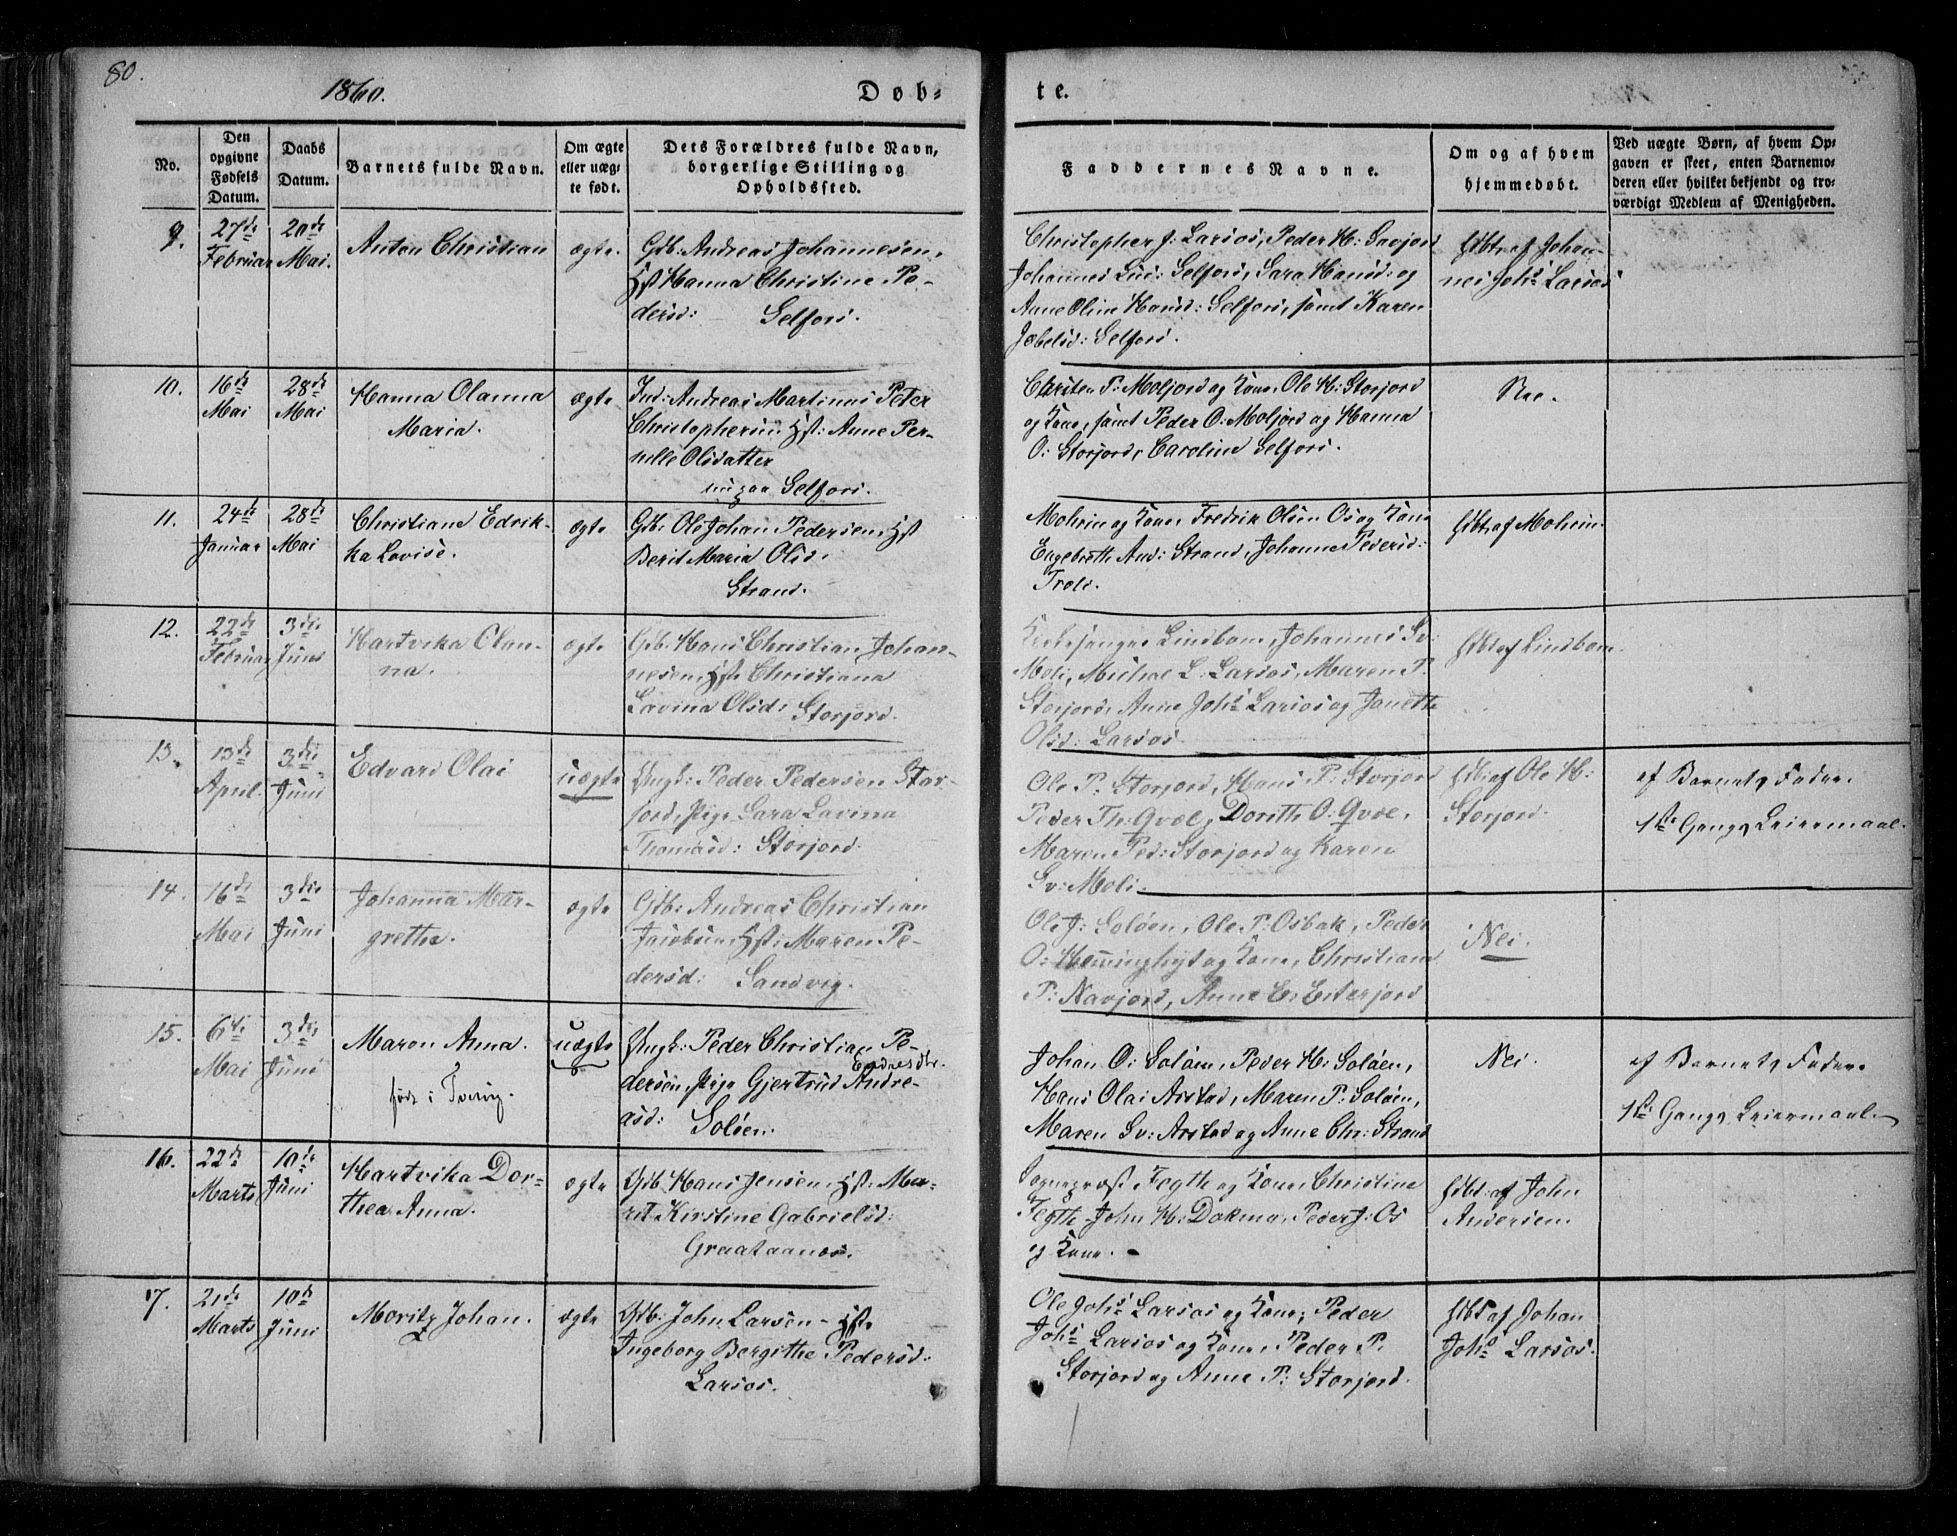 80.
1860.
Døb-
te.
No.
Den opgivne Fødsels Datum.
Daabs Datum.
Barnets fulde Navn.
Om ægte eller uægte født.
Dets Forældres fulde Navn, borgerlige Stilling og Opholdsted.
Faddernes Navne.
Om og af hvem hjemmedøbt.
Ved uægte Børn, af hvem Opgaven er skeet, enten Barnemoderen eller hvilket bekjendt og troværdigt Medlem af Menigheden.
9.
27de
Februar
20de
Mai.
Anton Christian
ægte.
Gdb: Andreas Johannesen,
Hst Hanna Christine Pe-
dersd: Selfors.
Christopher J: Larsos, Peder H: Navjord
Johannes Selfors, Sara Hansd: og
Anne Oline Hansd: Selfors, samt Karen
Jobelsd: Selfors.
hdbt af Johan-
nes Johs Larsos
10.
16de
Mai
28de
Mai
Hanna Olanna
Maria.
ægte
Ind: Andreas Martinus Peter
Christophersen Hst: Anne Per-
nelle Olsdatter
Selfors.
Christen P: Moljord og Kone, Ole H: Storjord
og Kone, samt Peder O: Moljord og Hanna
O: Storjord, Caroline Selfors.
Nee.
11.
24de
Januar
28de
Mai
Christiane Edrik-
ka Lovise.
ægte
Gdb: Ole Johan Pedersen, Hst
Berit Maria Olsd:
Strand.
Mohrin og Kone, Fredrik Olsen Os og Kone
Engebreth And: Strand, Johanne Pedersd:
Trols.
hdbt af Mohrin.
12.
22de
Februar
3die
Juni
Hartvika Olan-
na.
ægte
Gdb: Hans Christian Johan-
nesen, Hst Christiana
Lavina Olsd: Storjord.
Kirkesanger Lindbom, Johannes Sv:
Moli, Michal L: Larsos, Maren P:
Storjord, Anne Johs Larsos og Janethe
Olsd: Larsos
hdbt af Lindbom
13.
13de
April.
3die
Juni
Edvard Olai
uægte
Ungk: Peder Pedersen Stor-
jord, Pige Sara Lavina
Thomasd: Storjord.
Ole P: Storjord, Hans P: Storjord
Peder Th: Qvæl, Dorith O: Qvæl,
Maren Ped: Storjord og Karen
Sv: Moli.
hdbt af Ole H:
Storjord.
af Barnets Fader.
1ste Gangs Leiermaal.
14.
16de
Mai
3die
Juni
Johanna Mar-
grethe.
ægte
Gdb: Andreas Christian
Jacobsen, Hst: Maren Pe-
dersd: Sandvig.
Ole J: Soløen, Ole P: Osbak, Peder
O: Hemminghyt og Kone, Christiane
P: Navjord, Anne E: Esterjord
Nei.
15.
6te
Mai
3die
Juni
Maren Anna.
født i Tvervig.
uægte
Ungk: Peder Christian Pe-
Endresdtr.
dersen, Pige Gjertrud Andre-
asd: Soløen.
Johan O: Soløen, Peder H: Soløen,
Hans Olai Arstad, Maren P: Soløen,
Maren Sv: Arstad og Anne Chr: Strand
Nei.
af Barnets Fader.
1ste Gangs Leiermaal.
16.
22de
Marts
10de
Juni
Hartvika Dor-
thea Anna.
ægte
Gdb: Hans Jensen, Hst: Ma-
rit Kirstine Gabrielsd:
Graataanæs.
Sognepræst Fogth og Kone, Christine
Fogth, John H: Dokmo, Peder J: Os
og Kone.
hdbt: af John
Andersen.
17.
21de
Marts
10de
Juni
Moritz Johan.
ægte
Gdb: John Larsen - Hst:
Ingeborg Bergithe Pedersd:
Larsos.
Ole Johs Larsos og Kone, Peder
Johs Larsos og Kone, Peder P:
Storjord og Anne P: Storjord.
hdbt af Johan
Johs Larsos.